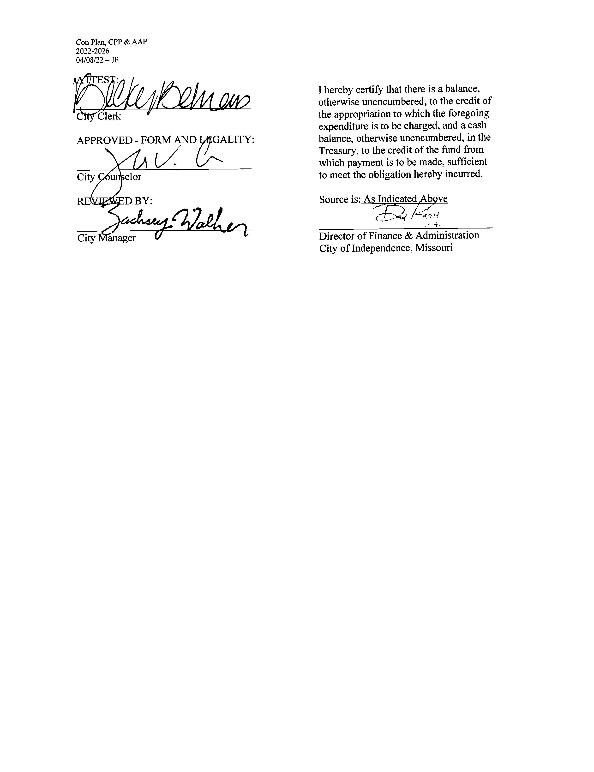 Con Plan, CPP & AAP
2022-2026
04/08/22 – JF
ATTEST:
City Clerk
APPROVED - FORM AND LEGALITY:
City Counselor
REVIEWED BY:
Zachary Walker
City Manager
I hereby certify that there is a balance,
otherwise unencumbered, to the credit of
the appropriation to which the foregoing
expenditure is to be charged, and a cash
balance, otherwise unencumbered, in the
Treasury, to the credit of the fund from
which payment is to be made, sufficient
to meet the obligation hereby incurred.
Source is: As Indicated Above
Director of Finance & Administration
City of Independence, Missouri